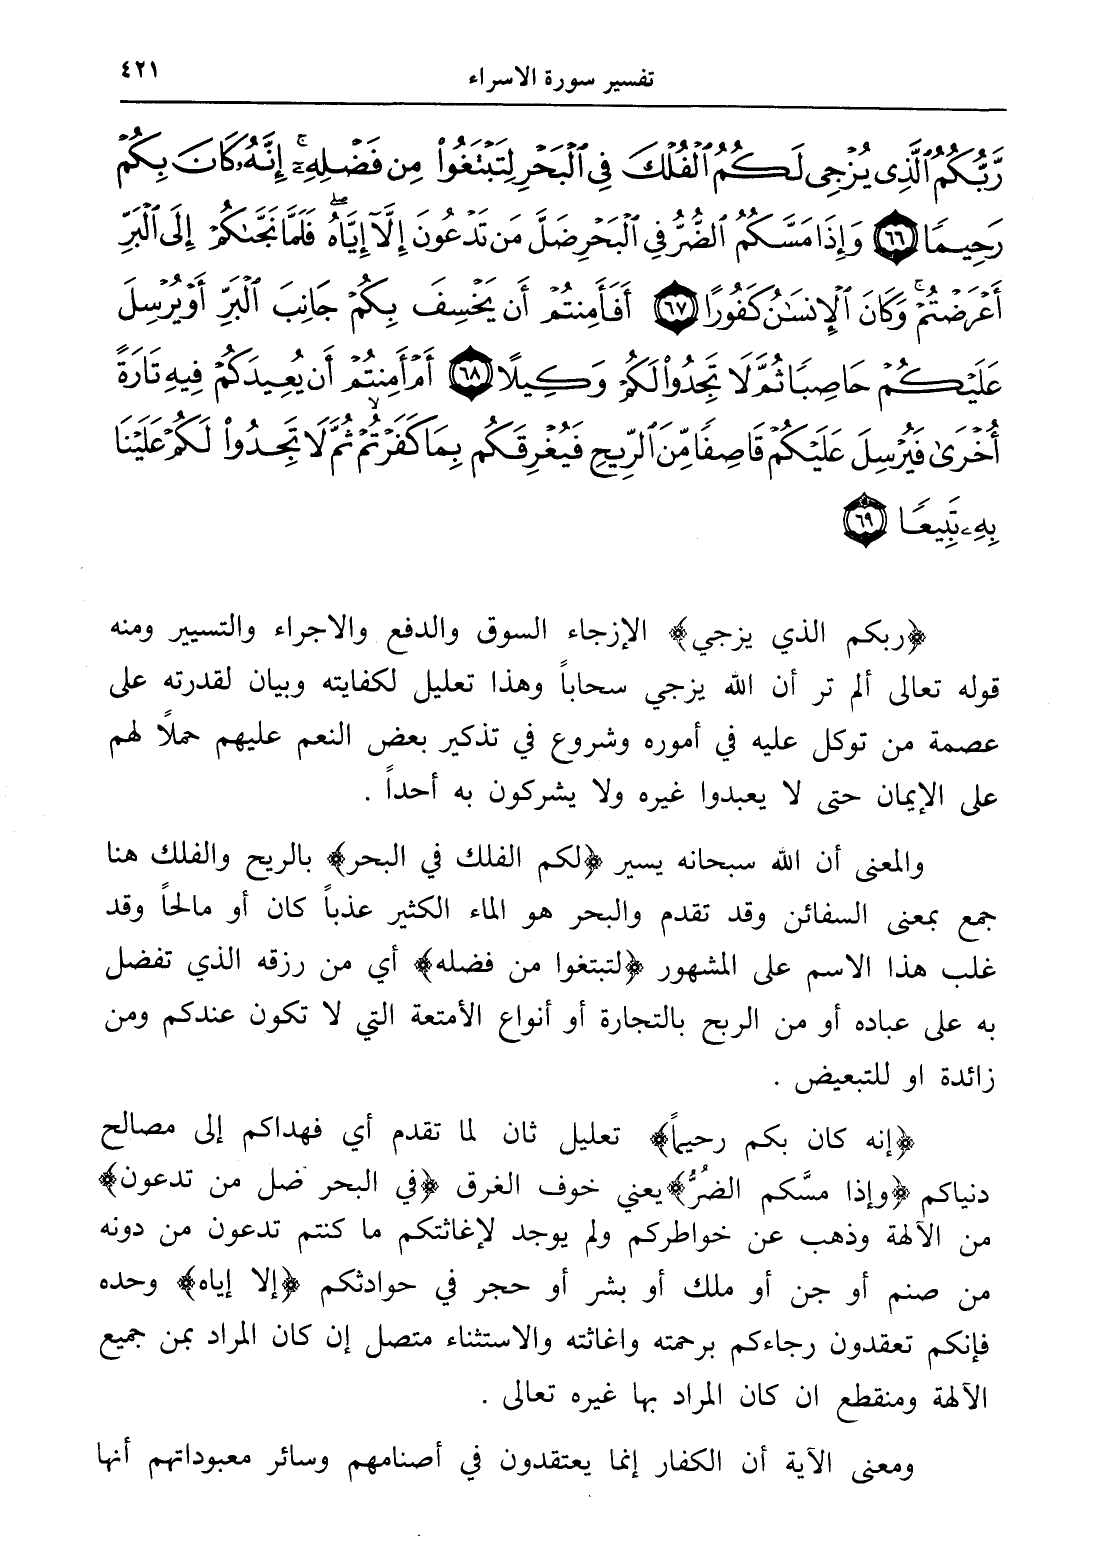 تفسير سورة الاسراء ٤٢١
رَّبُّكُمُ ٱلَّذِى يُزْجِى لَكُمُ ٱلْفُلْكَ فِى ٱلْبَحْرِ لِتَبْتَغُوا۟ مِن فَضْلِهِۦٓ ۚ إِنَّهُۥ كَانَ بِكُمْ
رَحِيمًا ﴿٦٦﴾ وَإِذَا مَسَّكُمُ ٱلضُّرُّ فِى ٱلْبَحْرِ ضَلَّ مَن تَدْعُونَ إِلَّآ إِيَّاهُ ۖ فَلَمَّا نَجَّىٰكُمْ إِلَى ٱلْبَرِّ
أَعْرَضْتُمْ ۚ وَكَانَ ٱلْإِنسَٰنُ كَفُورًا ﴿٦٧﴾ أَفَأَمِنتُمْ أَن يَخْسِفَ بِكُمْ جَانِبَ ٱلْبَرِّ أَوْ يُرْسِلَ
عَلَيْكُمْ حَاصِبًا ثُمَّ لَا تَجِدُوا۟ لَكُمْ وَكِيلًا ﴿٦٨﴾ أَمْ أَمِنتُمْ أَن يُعِيدَكُمْ فِيهِ تَارَةً
أُخْرَىٰ فَيُرْسِلَ عَلَيْكُمْ قَاصِفًا مِّنَ ٱلرِّيحِ فَيُغْرِقَكُم بِمَا كَفَرْتُمْ ۙ ثُمَّ لَا تَجِدُوا۟ لَكُمْ عَلَيْنَا
بِهِۦ تَبِيعًا ﴿٦٩﴾
﴿ربكم الذي يزجي﴾ الإزجاء السوق والدفع والاجراء والتسيير ومنه
قوله تعالى ألم تر أن الله يزجي سحاباً وهذا تعليل لكفايته وبيان لقدرته على
عصمة من توكل عليه في أموره وشروع في تذكير بعض النعم عليهم حملاً لهم
على الإيمان حتى لا يعبدوا غيره ولا يشركون به أحداً .
والمعنى أن الله سبحانه يسير ﴿لكم الفلك في البحر﴾ بالريح والفلك هنا
جمع بمعنى السفائن وقد تقدم والبحر هو الماء الكثير عذباً كان أو مالحاً وقد
غلب هذا الاسم على المشهور ﴿لتبتغوا من فضله﴾ أي من رزقه الذي تفضل
به على عباده أو من الربح بالتجارة أو أنواع الأمتعة التي لا تكون عندكم ومن
زائدة او للتبعيض .
﴿إنه كان بكم رحيماً﴾ تعليل ثان لما تقدم أي فهداكم إلى مصالح
دنياكم ﴿وإذا مسَّكم الضُرُّ﴾ يعني خوف الغرق ﴿في البحر ضل من تدعون﴾
من الآلهة وذهب عن خواطركم ولم يوجد لإغاثتكم ما كنتم تدعون من دونه
من صنم أو جن أو ملك أو بشر أو حجر في حوادثكم ﴿إلا إياه﴾ وحده
فإنكم تعقدون رجاءكم برحمته واغاثته والاستثناء متصل إن كان المراد بمن جميع
الآلهة ومنقطع ان كان المراد بها غيره تعالى .
ومعنى الآية أن الكفار إنما يعتقدون في أصنامهم وسائر معبوداتهم أنها